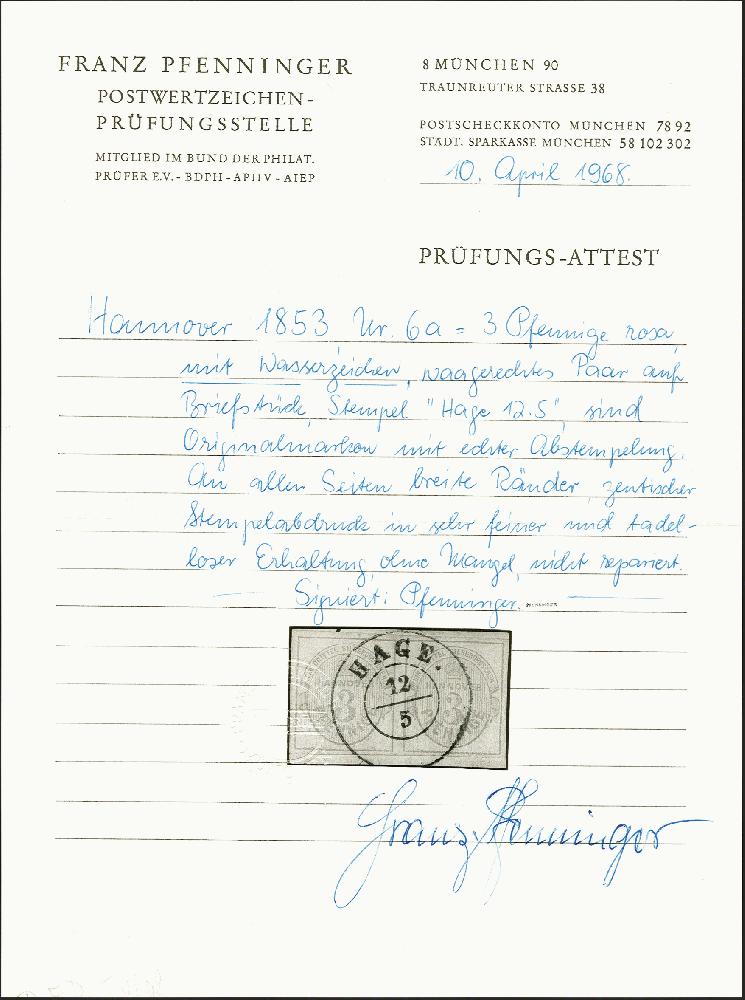 FRANZ PFENNINGER
POSTWERTZEICHEN-
PRÜFUNGSSTELLE
MITGLIED IM BUND DER PHILAT.
PRÜFER E.V. - BDPH - APHV - AIEP
8 MÜNCHEN 90
TRAUNREUTER STRASSE 38
POSTSCHECKKONTO MÜNCHEN 78 92
STÄDT. SPARKASSE MÜNCHEN 58 102 302
10. April 1968.
PRÜFUNGS-ATTEST
Hannover 1853 Nr. 6a = 3 Pfennige rosa,
mit Wasserzeichen, waagerechtes Paar auf
Briefstück, Stempel "Hage 12.5", sind
Originalmarken mit echter Abstempelung.
An allen Seiten breite Ränder, zentrischer
Stempelabdruck in sehr feiner und tadel-
loser Erhaltung, ohne Mangel, nicht repariert.
Signiert: Pfenninger. PFENNINGER
HAGE.
12
5
3 3
Franz Pfenninger